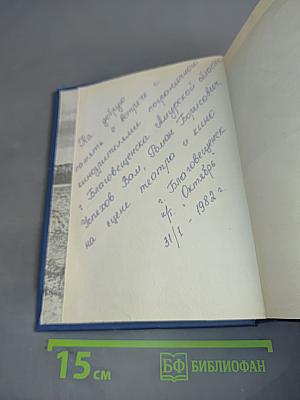 На добрую
память о встрече с
кинозрителями пограничного
г. Благовещенска Амурской области
Успехов Вам, Ролан Борисович,
на сцене театра и кино
г. Благовещенск
к/т. "Октябрь
31/I - 1982 г.
15 см
БФ БИБЛИОФАН